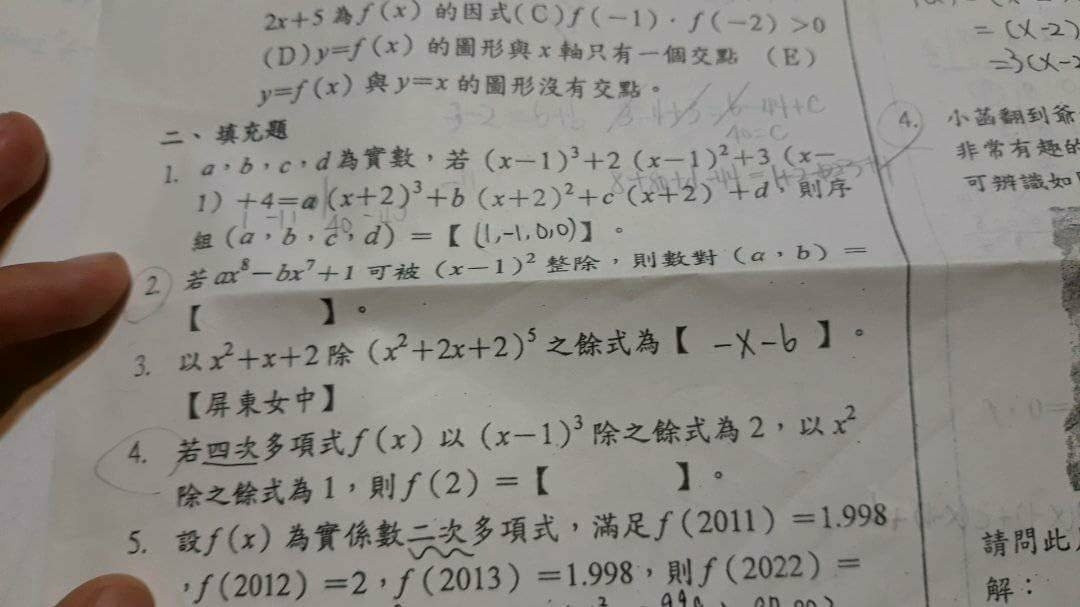 2x+5 為 f(x) 的因式(C) f(-1)·f(-2) >0
(D) y=f(x) 的圖形與 x 軸只有一個交點 (E)
y=f(x) 與 y=x 的圖形沒有交點。
二、填充題
1. a,b,c,d 為實數,若 (x-1)³+2 (x-1)²+3 (x-
1) +4=a (x+2)³+b (x+2)²+c (x+2) +d,則序
組 (a,b,c,d) =【 (1,-1,0,0)】。
2. 若 ax⁸-bx⁷+1 可被 (x-1)² 整除,則數對 (a,b) =
【 】。
3. 以 x²+x+2 除 (x²+2x+2)⁵ 之餘式為【 -x-6 】。
【屏東女中】
4. 若四次多項式 f(x) 以 (x-1)³ 除之餘式為 2,以 x²
除之餘式為 1,則 f(2) =【 】。
5. 設 f(x) 為實係數二次多項式,滿足 f(2011) =1.998
,f(2012) =2,f(2013) =1.998,則 f(2022) =
= (x-2)
=3(x-2
4. 小菡翻到爺
非常有趣的
可辨識如
請問此
解: